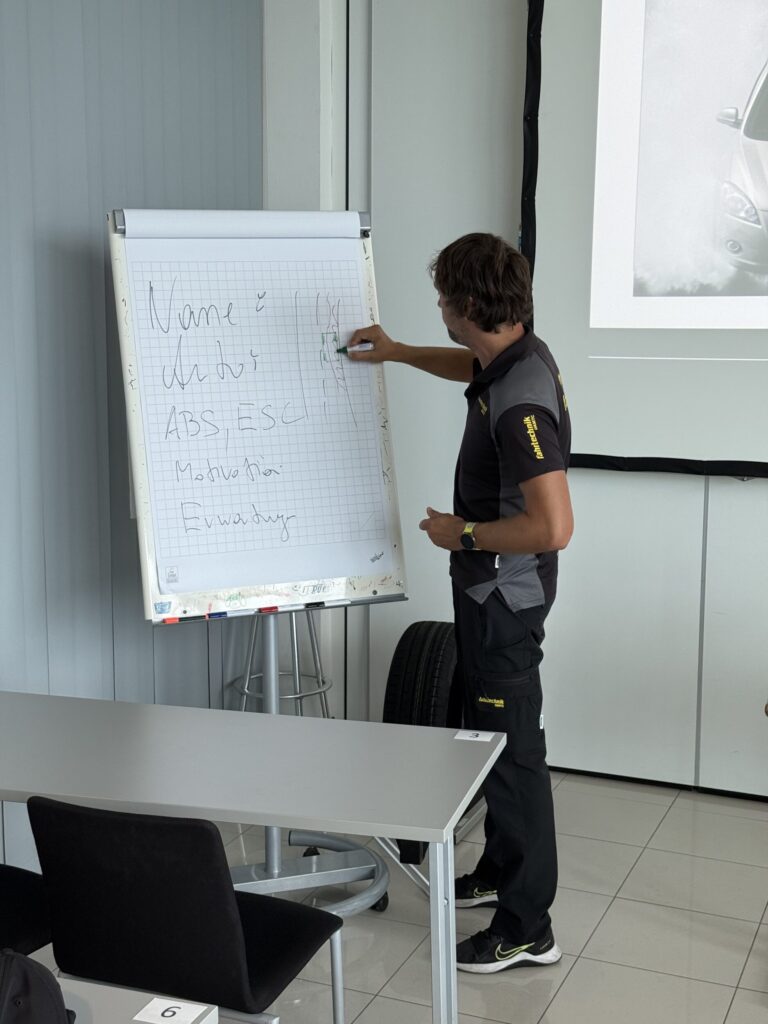 Name :
Auto :
ABS, ESC
Motivation
Erwartung
fahrtechnik
fahrtechnik
3
6